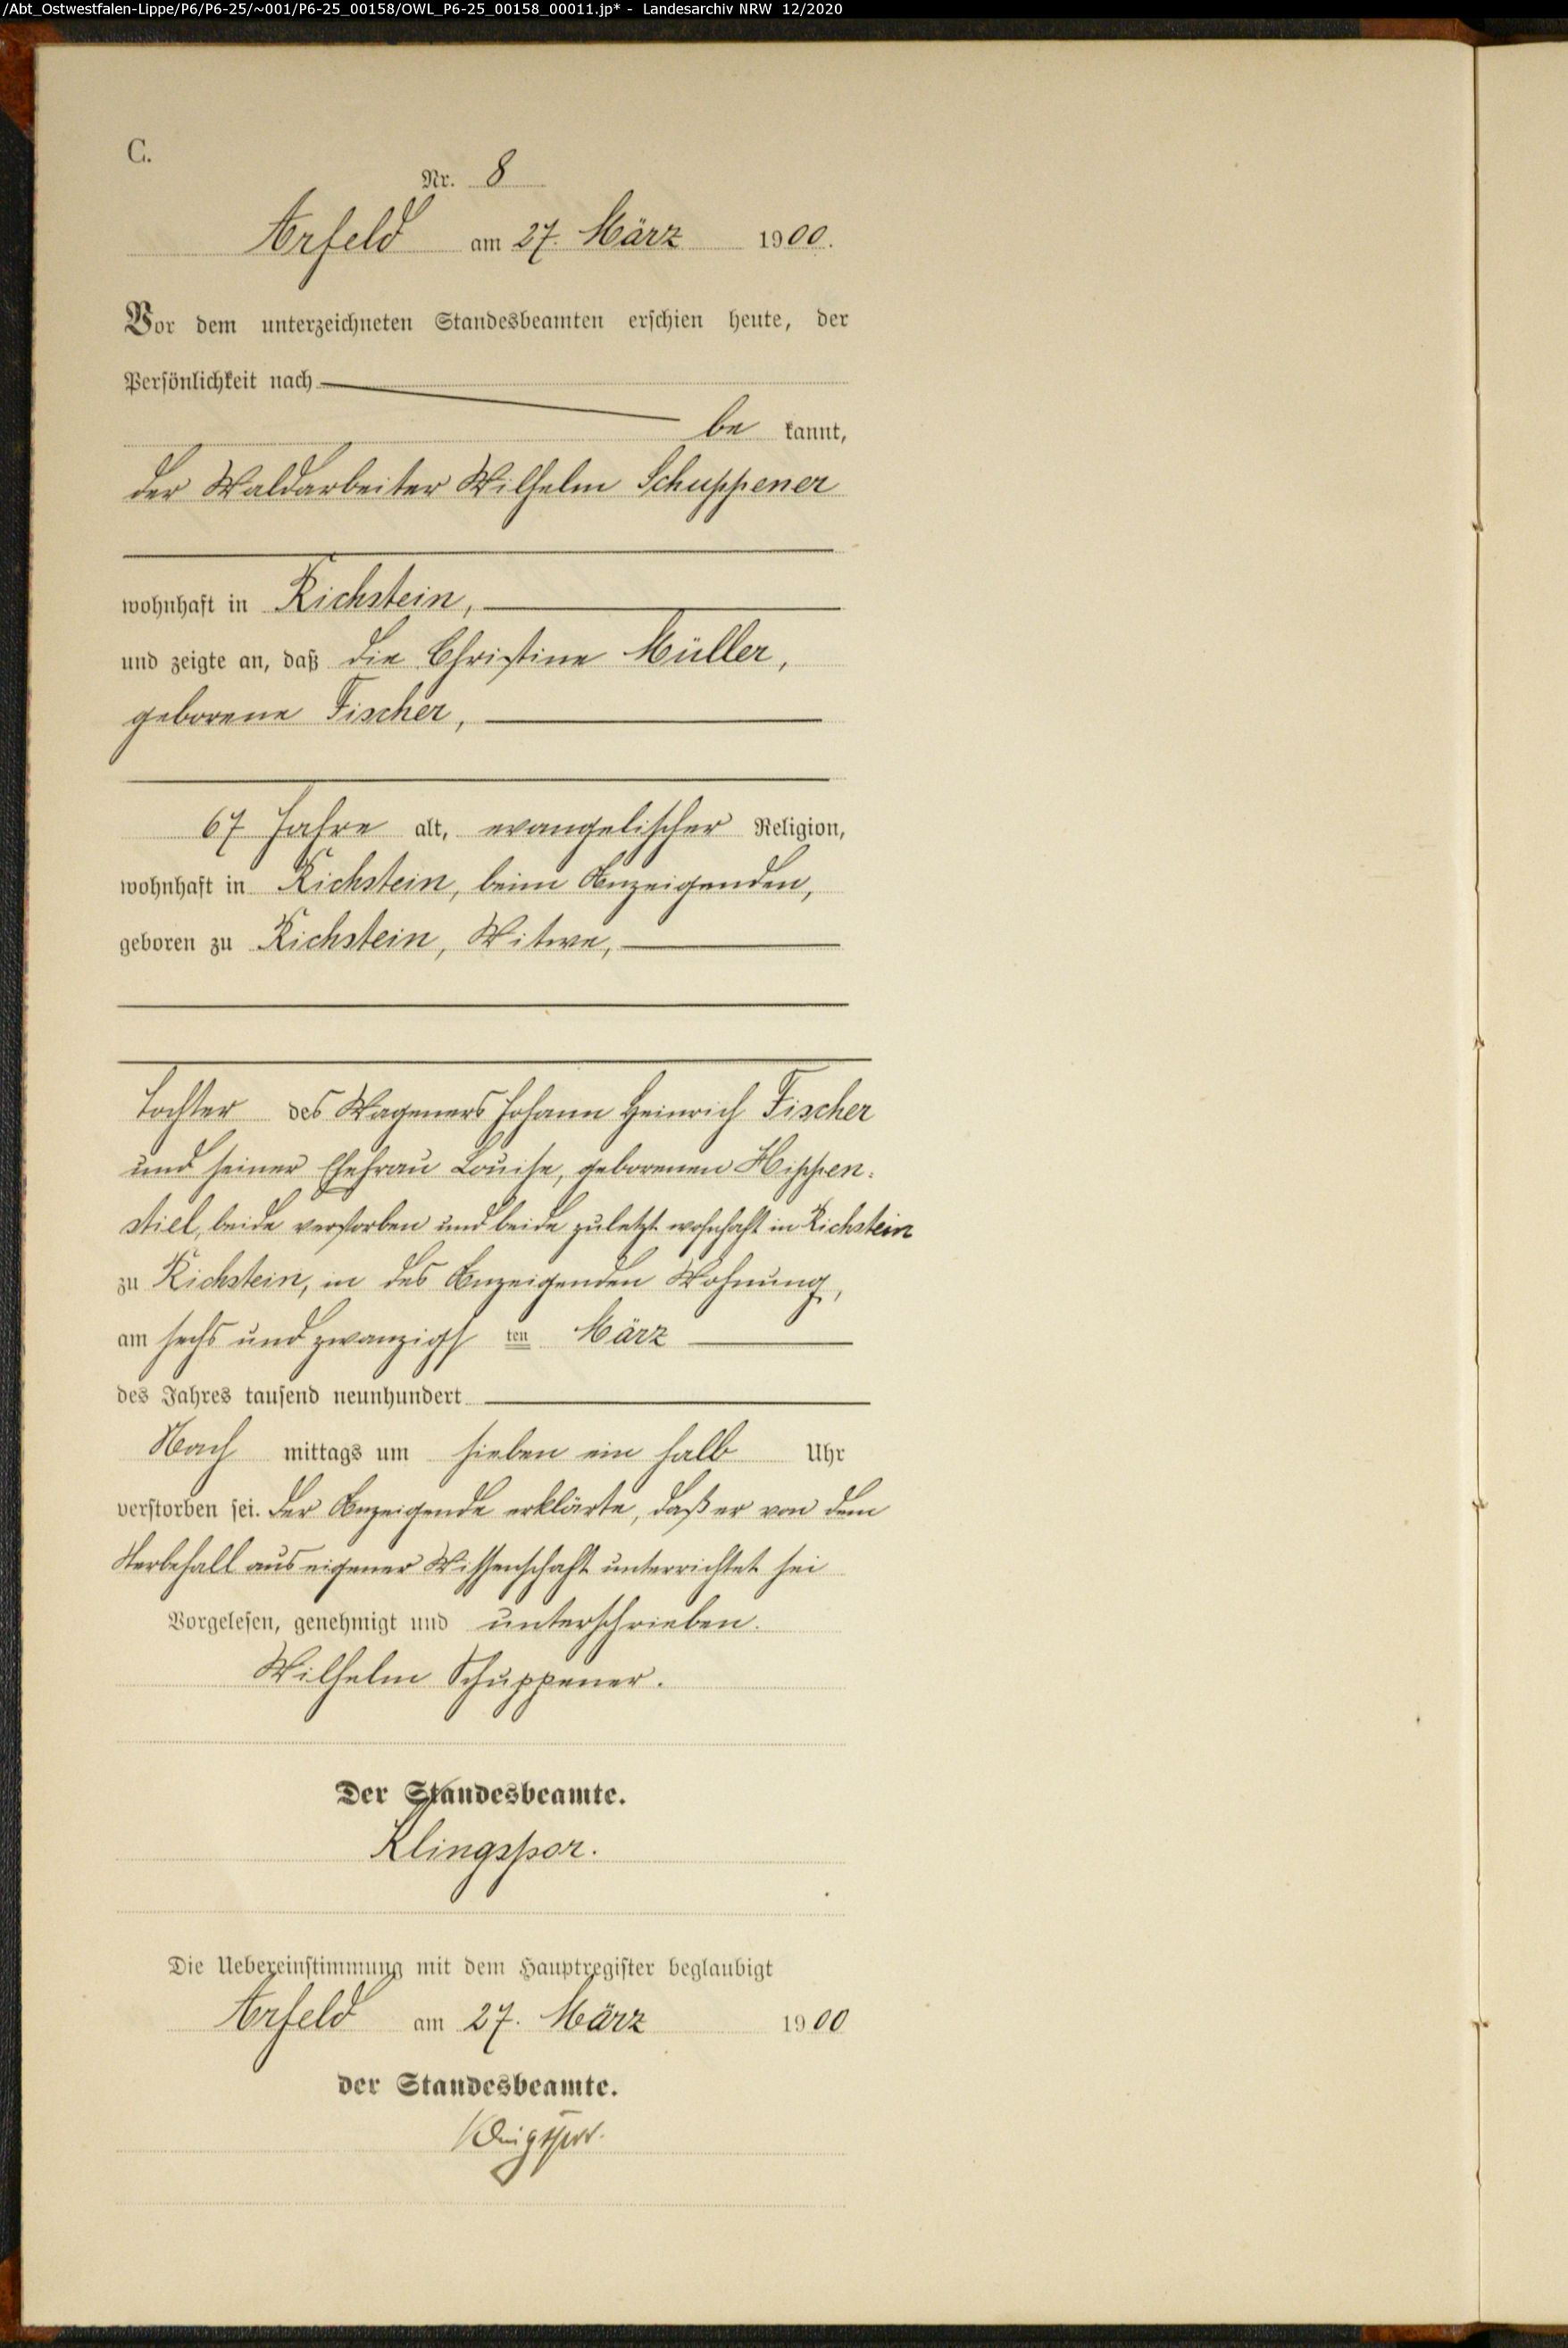 /Abt_Ostwestfalen-Lippe/P6/P6-25/~001/P6-25_00158/OWL_P6-25_00158_00011.jp* - Landesarchiv NRW 12/2020
C.
Nr. 8
Arfeld am 27. März 1900.
Vor dem unterzeichneten Standesbeamten erschien heute, der
Persönlichkeit nach
be kannt,
der Waldarbeiter Wilhelm Schuppener
wohnhaft in Richstein,
und zeigte an, daß die Christine Müller,
geborene Fischer,
67 Jahre alt, evangelischer Religion,
wohnhaft in Richstein, beim Anzeigenden,
geboren zu Richstein, Witwe,
Tochter des Wageners Johann Heinrich Fischer
und seiner Ehefrau Louise, geborenen Hippen-
stiel, beide verstorben und beide zuletzt wohnhaft in Richstein
zu Richstein, in des Anzeigenden Wohnung,
am sechs und zwanzigs ten März
des Jahres tausend neunhundert
Nach mittags um sieben ein halb Uhr
verstorben sei. Der Anzeigende erklärte, daß er von dem
Sterbefall aus eigener Wissenschaft unterrichtet sei
Vorgelesen, genehmigt und unterschrieben.
Wilhelm Schuppener.
Der Standesbeamte.
Klingspor.
Die Uebereinstimmung mit dem Hauptregister beglaubigt
Arfeld am 27. März 1900
der Standesbeamte.
Klingspor.